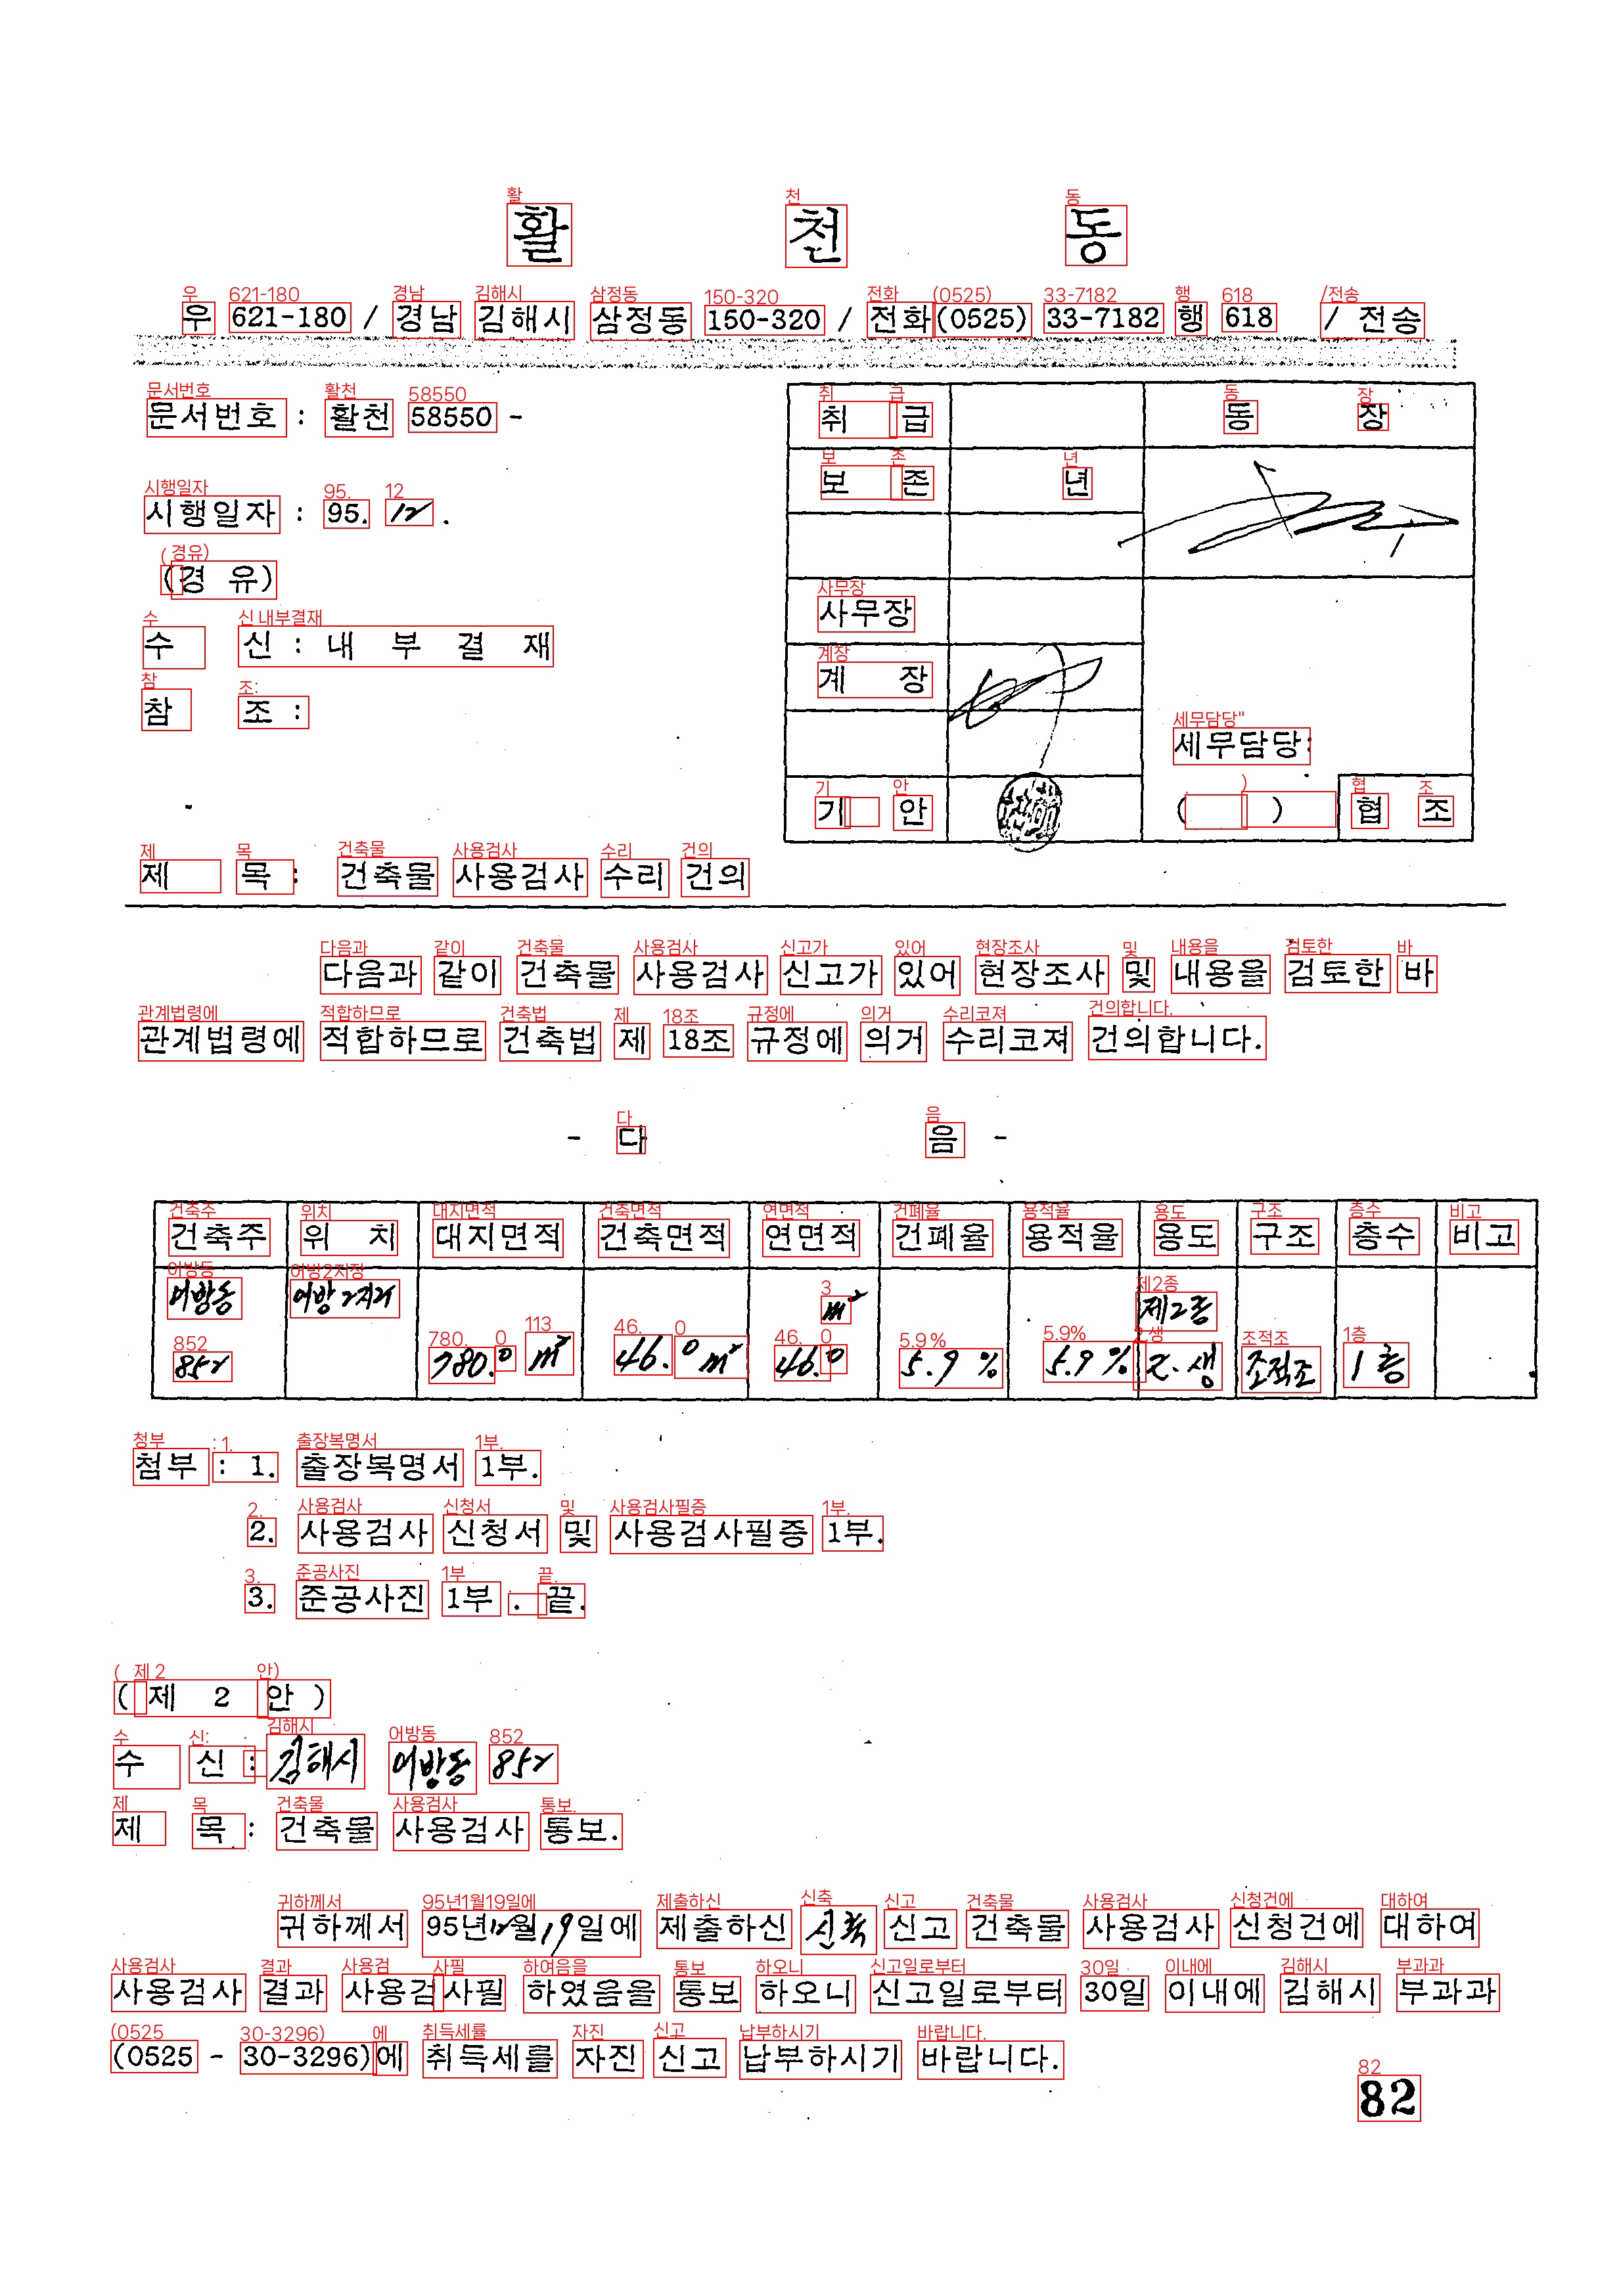 활 천 동
우 621-180 / 경남 김해시 삼정동 150-320 / 전화 (0525) 33-7182 행 618 / 전송
문서번호 : 활천 58550 -
시행일자 : 95. 12 .
(경 유)
수 신 : 내 부 결 재
참 조 :
취 급 동 장
보 존 년
사무장
계 장
세무담당:
기 안 ( ) 협 조
제 목 : 건축물 사용검사 수리 건의
다음과 같이 건축물 사용검사 신고가 있어 현장조사 및 내용을 검토한 바
관계법령에 적합하므로 건축법 제 18조 규정에 의거 수리코져 건의합니다.
- 다 음 -
건축주 위 치 대지면적 건축면적 연면적 건폐율 용적율 용도 구조 층수 비고
어방동 852 780.0 m² 46.0 m² 46.0 m² 5.9 % 5.9 % 제2종 조적조 1층
첨부 : 1. 출장복명서 1부.
2. 사용검사 신청서 및 사용검사필증 1부.
3. 준공사진 1부 . 끝.
( 제 2 안 )
수 신 : 김해시 어방동 852
제 목 : 건축물 사용검사 통보.
귀하께서 95년12월19일에 제출하신 신축 신고 건축물 사용검사 신청건에 대하여
사용검사 결과 사용검사필 하였음을 통보 하오니 신고일로부터 30일 이내에 김해시 부과과
(0525 - 30-3296)에 취득세를 자진 신고 납부하시기 바랍니다.
82